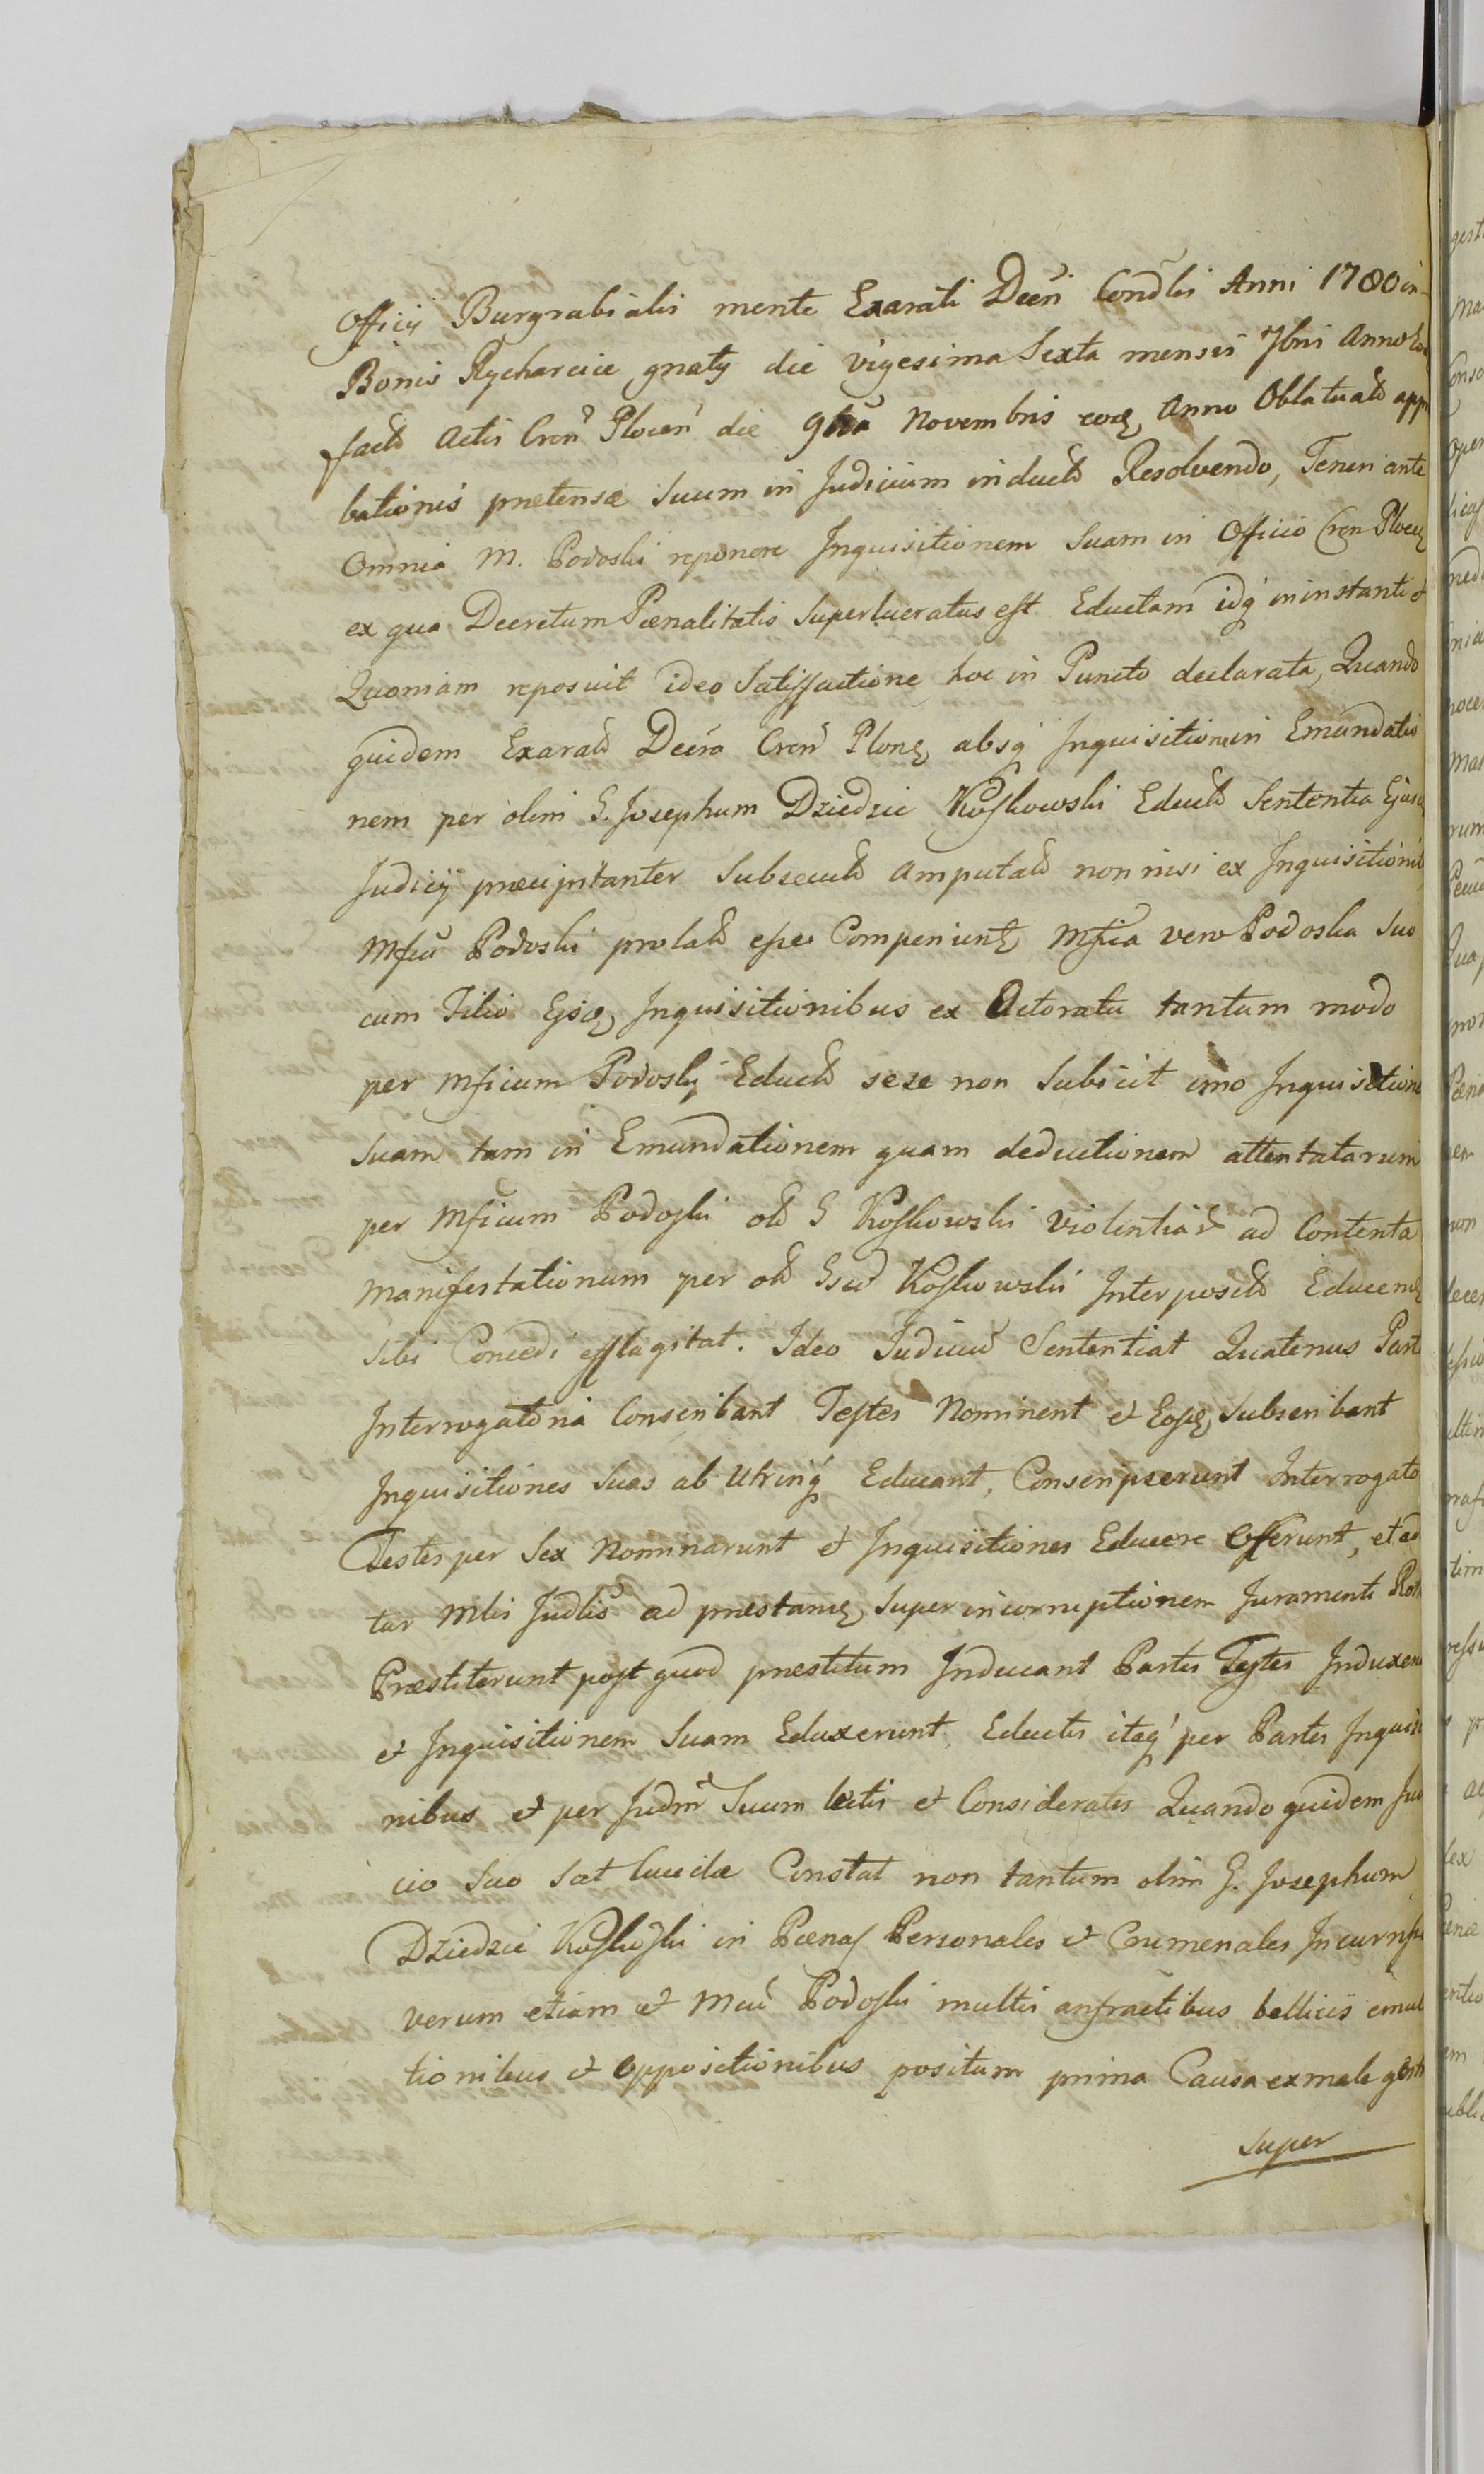 Officij Burgrabialis mente Exarati Decri Condlis Anni 1780 in
Bonis Rycharcice gnaty die vigesima Sexta mensis 7bris Anno
facto Actis Cren Plocen die 9na Novembris eodq Anno Oblatuato
bationis prætensæ Suum in Judicium inducto Resolvendo, Teneri ante
Omnia M. Podoski reponere Inquisitionem Suam in Officio Cren Plocen
ex qua Decretum Pænalitatis Superlucratus est Eductam idq in instanti et
Quoniam reposuit ideo Satisfactione hoc in Puncto declarata, Quando
quidem Exarato Decro Cren absq Inquisitionum Emundatio
nem per olim G. Josephum Dziedzic Koskowski Educto Sententia
Judicij præcipitanter Subsecuto amputato non nisi ex Inquisitionib
Mficu Podoski prolato esse Mfica vero Podoska Suo
cum Filio Inquisitionibus ex Actoratu tantum modo
per Mficum Podosky Educto sese non Subicit imo Inquisitione
Suam tam in Emundationem quam deductionem attentatarum
per Mficum Podoski olo G Koskowski violentiar ad Contenta
Manifestationum per olo Koskowski Interposito Educend
sibi Concedi efflagitat. Ideo Judiciu Sententiat Quatenus Part
Interrogatoria Conscribant Testes Nominent et Eosq Subscribant
Inquisitiones Suas ab Utrinq Educant, Conscripserunt Interrogato
Testes per Sex Nominarunt et Inquisitiones Educere Offerunt, et ad
tur Mlis Judlis ad præstand Super incorruptionem Juramenti Rot
Præstiterunt post quod præstitum Inducant Partes Testes Induxeru
et Inquisitionem Suam Eduxerunt, Eductis itaq per Partes Inquisi
nibus et per Judm Suum lectis et Consideratis Quandoquidem Jud
cio Suo Sat lucide Constat non tantum olim G. Josephum
Dziedzic Koskoski in Pænas Personales et Crumenales Incurrisse
verum etiam et Mcu Podoski multis anfractibus bellicis emul
tionibus et Oppositionibus positum prima Causa ex male gest
Super